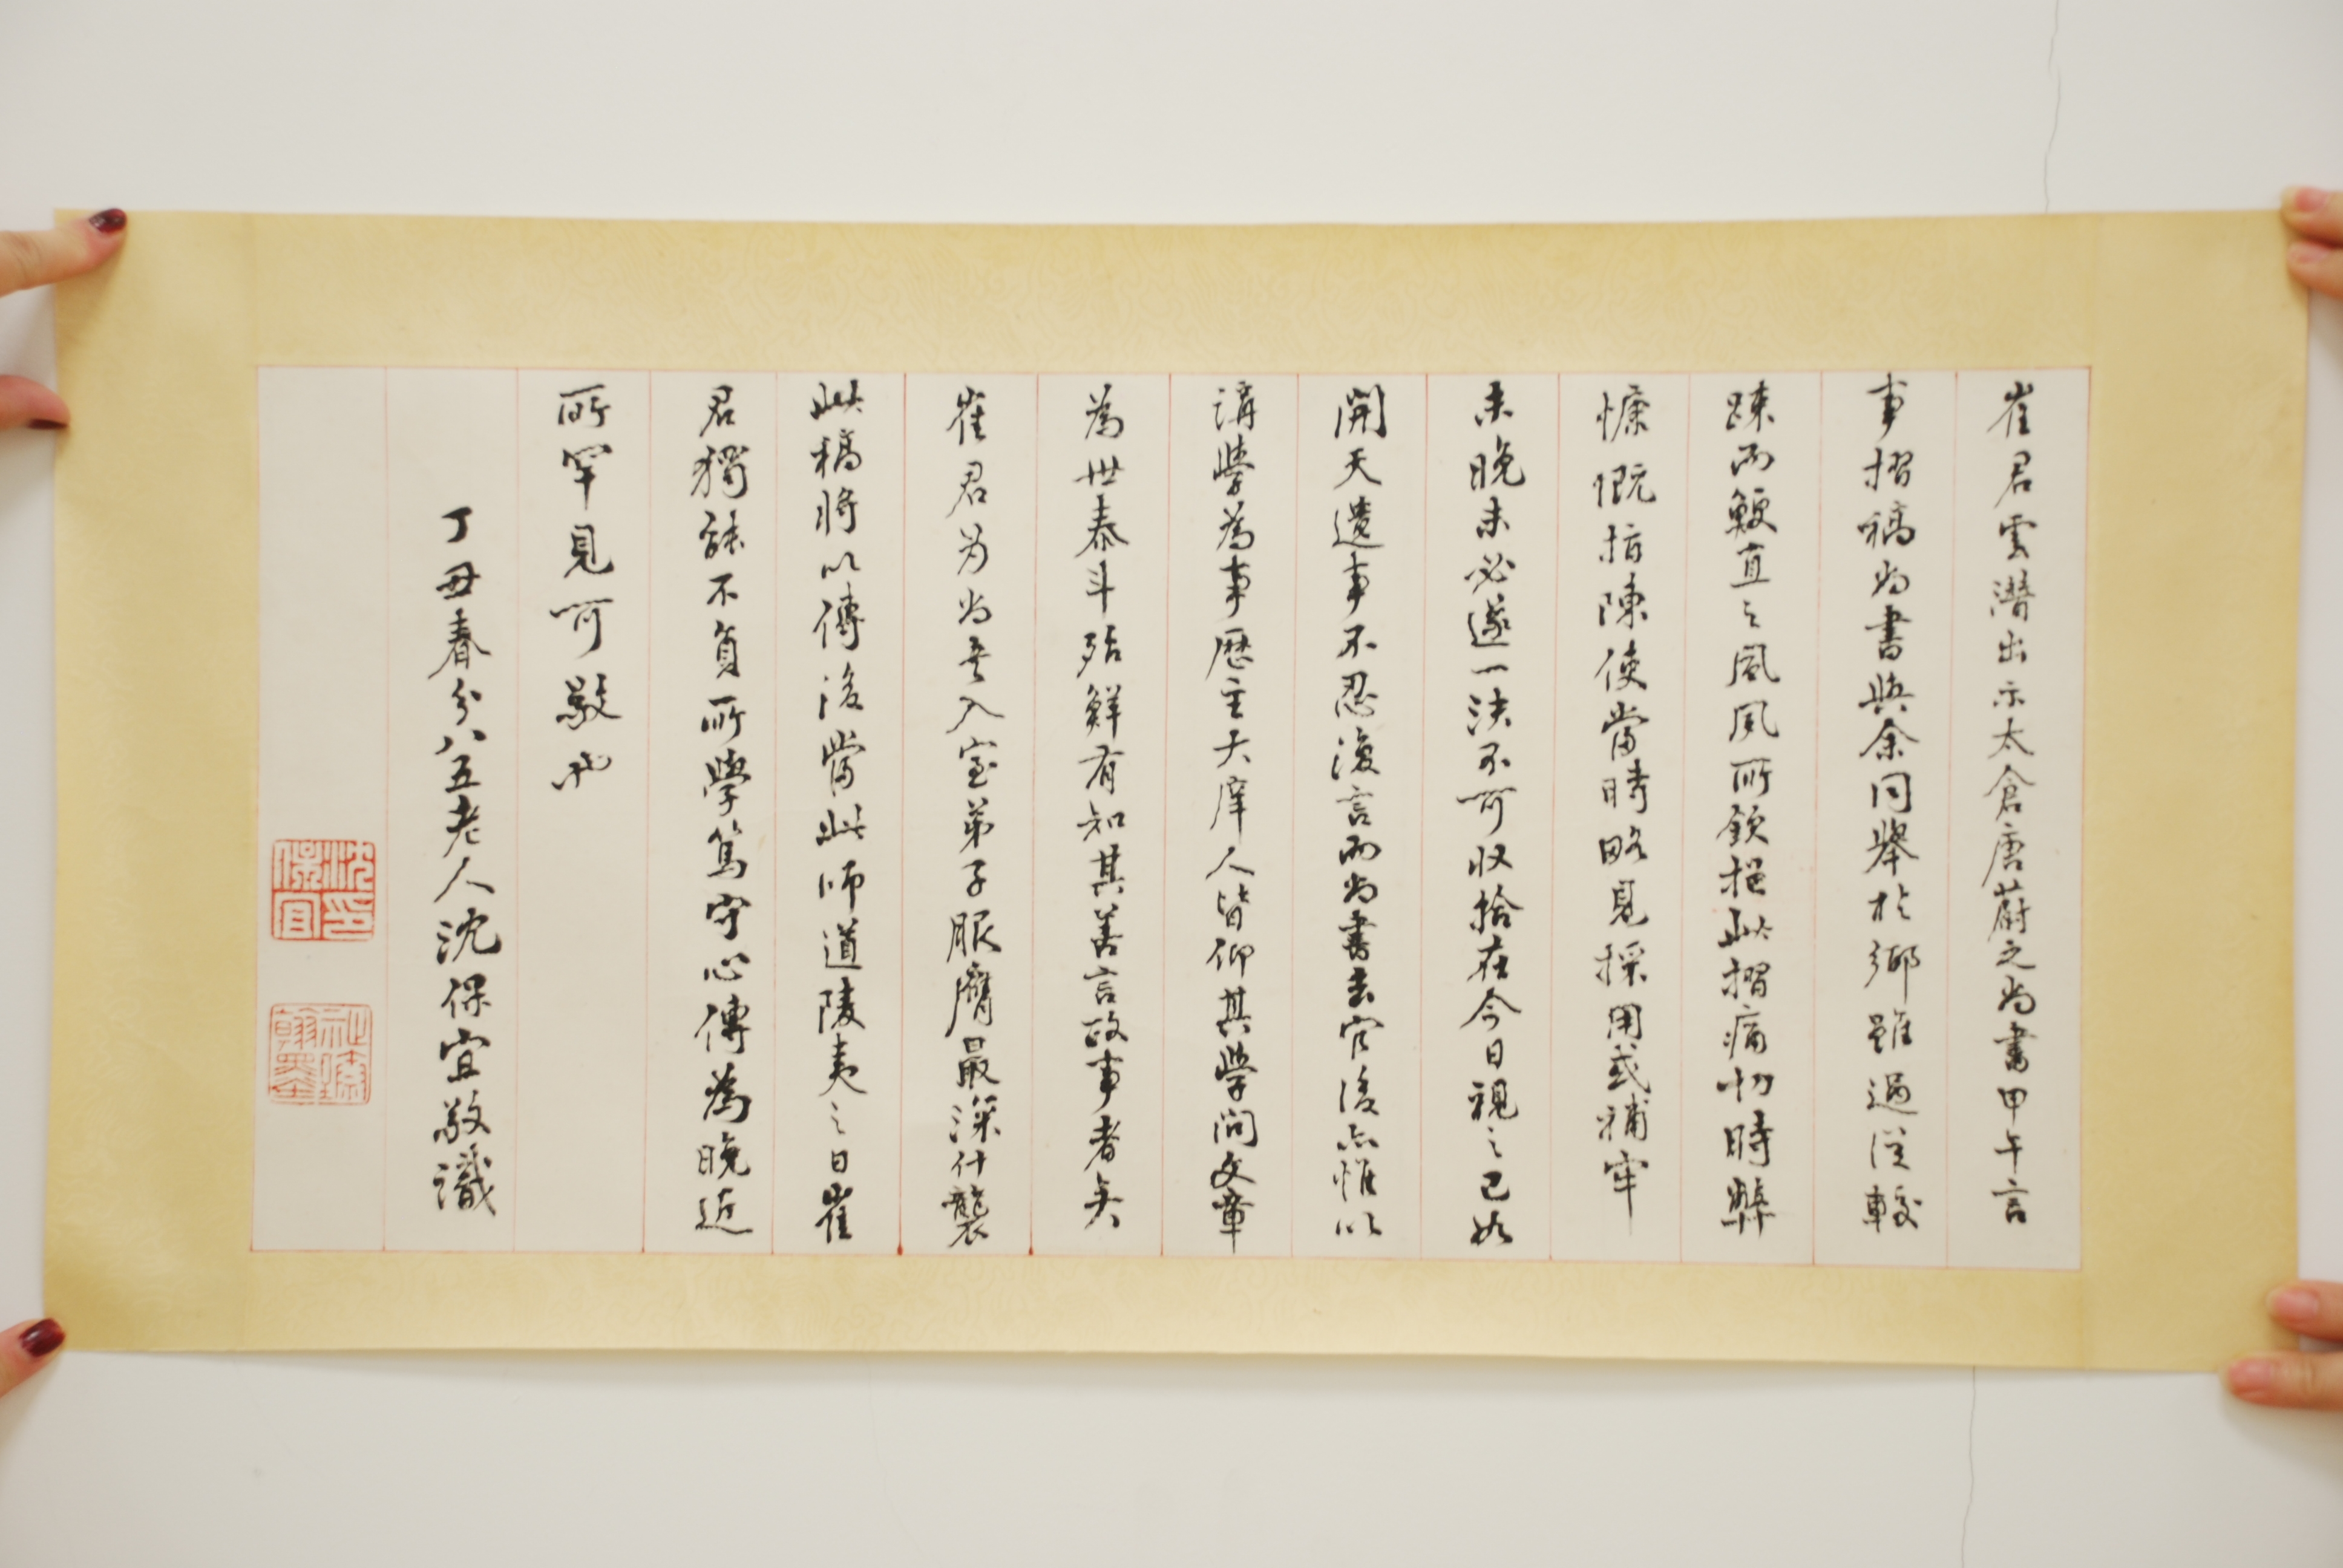 崔君雲潛出示太倉唐蔚之尚書甲午言
事摺稿尚書與余同舉於鄉雖過從較
踈而鯁直之風夙所欽挹此摺痛切時弊
慷慨指陳使當時略見採用或補牢
未晚未必遂一決不可收拾在今日視之已如
開天遺事不忍復言而尚書去官後亦惟以
講學為事歷主大庠人皆仰其學問文章
為世泰斗殆鮮有知其善言政事者矣
崔君为尚書入室弟子服膺最深什襲
此稿將以傳後當此師道陵夷之日崔
君獨能不負所學篤守心傳為晚近
所罕見可敬也
丁丑春分八五老人沈保宜敬識
沈保宜印
翰墨